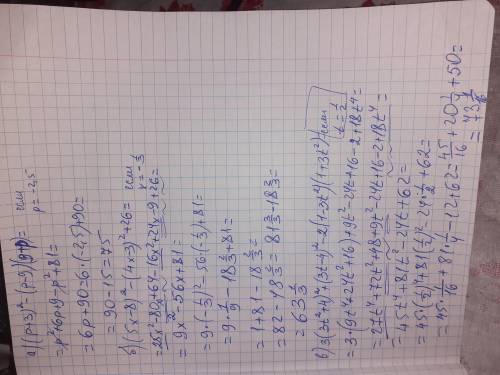 а) (p+3)² - (p-9)(9+p) = если p = -2,5
= p² + 6p + 9 - p² + 81 =
= 6p + 90 = 6·(-2,5) + 90 =
= 90 - 15 = 75
б) (5x-8)² - (4x-3)² + 26 = если x = -1/3
= 25x² - 80x + 64 - 16x² + 24x - 9 + 26 =
= 9x² - 56x + 81 =
= 9·(-1/3)² - 56·(-1/3) + 81 =
= 9·1/9 - 18 2/3 + 81 =
= 1 + 81 - 18 2/3 =
= 82 - 18 2/3 = 81 3/3 - 18 2/3 =
= 63 1/3
в) 3(3t²+4)² + (3t-4)² - 2(1-3t²)(1+3t²) если t = 1/2
= 3·(9t⁴+24t²+16) + 9t² - 24t + 16 - 2 + 18t⁴ =
= 27t⁴ + 72t² + 48 + 9t² - 24t + 16 - 2 + 18t⁴ =
= 45t⁴ + 81t² - 24t + 62 =
= 45·(1/2)⁴ + 81·(1/2)² - 24·1/2 + 62 =
= 45·1/16 + 81·1/4 - 12 + 62 = 45/16 + 20 1/4 + 50 =